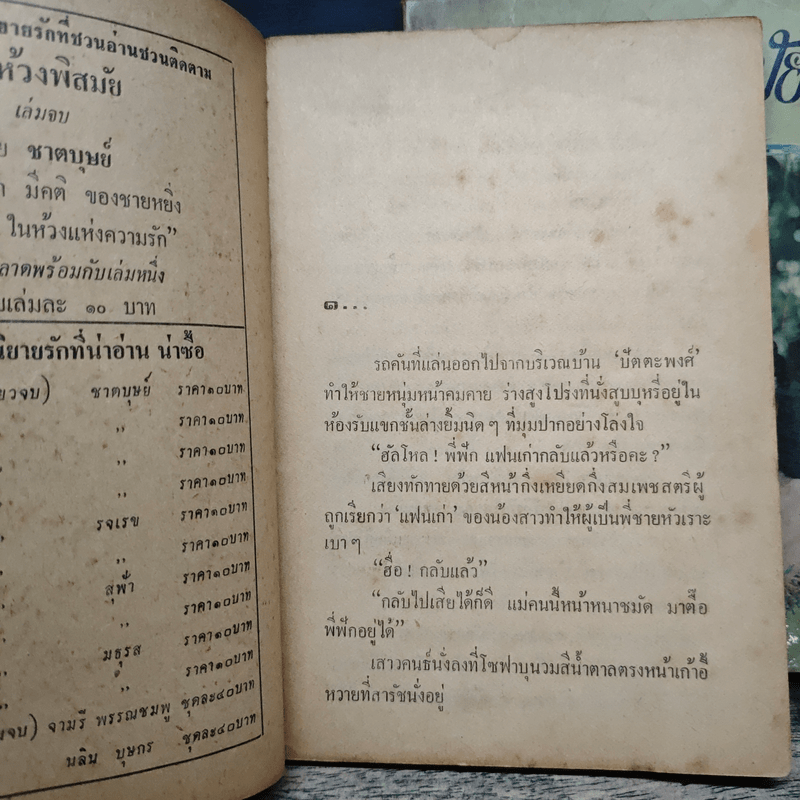 ยายรักที่ชวนอ่านชวนติดตาม
ห้วงพิสมัย
เล่มจบ
ย ชาตบุษย์
มีคติ ของชายหยิ่ง
ในห้วงแห่งความรัก”
ลาดพร้อมกับเล่มหนึ่ง
เล่มละ ๑๐ บาท
นิยายรักที่น่าอ่าน น่าซื้อ
ยวจบ) ชาตบุษย์ ราคา๑๐บาท
” ,, ราคา๑๐บาท
” ,, ราคา๑๐บาท
” ,, ราคา๑๐บาท
” รจเรข ราคา๑๐บาท
” ,, ราคา๑๐บาท
” สุฟ้า ราคา๑๐บาท
” ,, ราคา๑๐บาท
” มธุรส ราคา๑๐บาท
” ,, ราคา๑๐บาท
จบ) จามรี พรรณชมพู ชุดละ๔๐บาท
นลิน บุษกร ชุดละ๔๐บาท
๑...
รถคันที่แล่นออกไปจากบริเวณบ้าน ‘ปัตตะพงศ์’
ทำให้ชายหนุ่มหน้าคมคาย ร่างสูงโปร่งที่นั่งสูบบุหรี่อยู่ใน
ห้องรับแขกชั้นล่างยิ้มนิด ๆ ที่มุมปากอย่างโล่งใจ
“ฮัลโหล ! พี่ฟัก แฟนเก่ากลับแล้วหรือคะ ?”
เสียงทักทายด้วยสีหน้ากึ่งเหยียดกึ่งสมเพชสตรีผู้
ถูกเรียกว่า ‘แฟนเก่า’ ของน้องสาวทำให้ผู้เป็นพี่ชายหัวเราะ
เบา ๆ
“ฮื่อ ! กลับแล้ว”
“กลับไปเสียได้ก็ดี แม่คนนี้หน้าหนาชมัด มาตื๊อ
พี่ฟักอยู่ได้”
เสาวคนธ์นั่งลงที่โซฟาบุนวมสีน้ำตาลตรงหน้าเก้าอี้
หวายที่สารัชนั่งอยู่